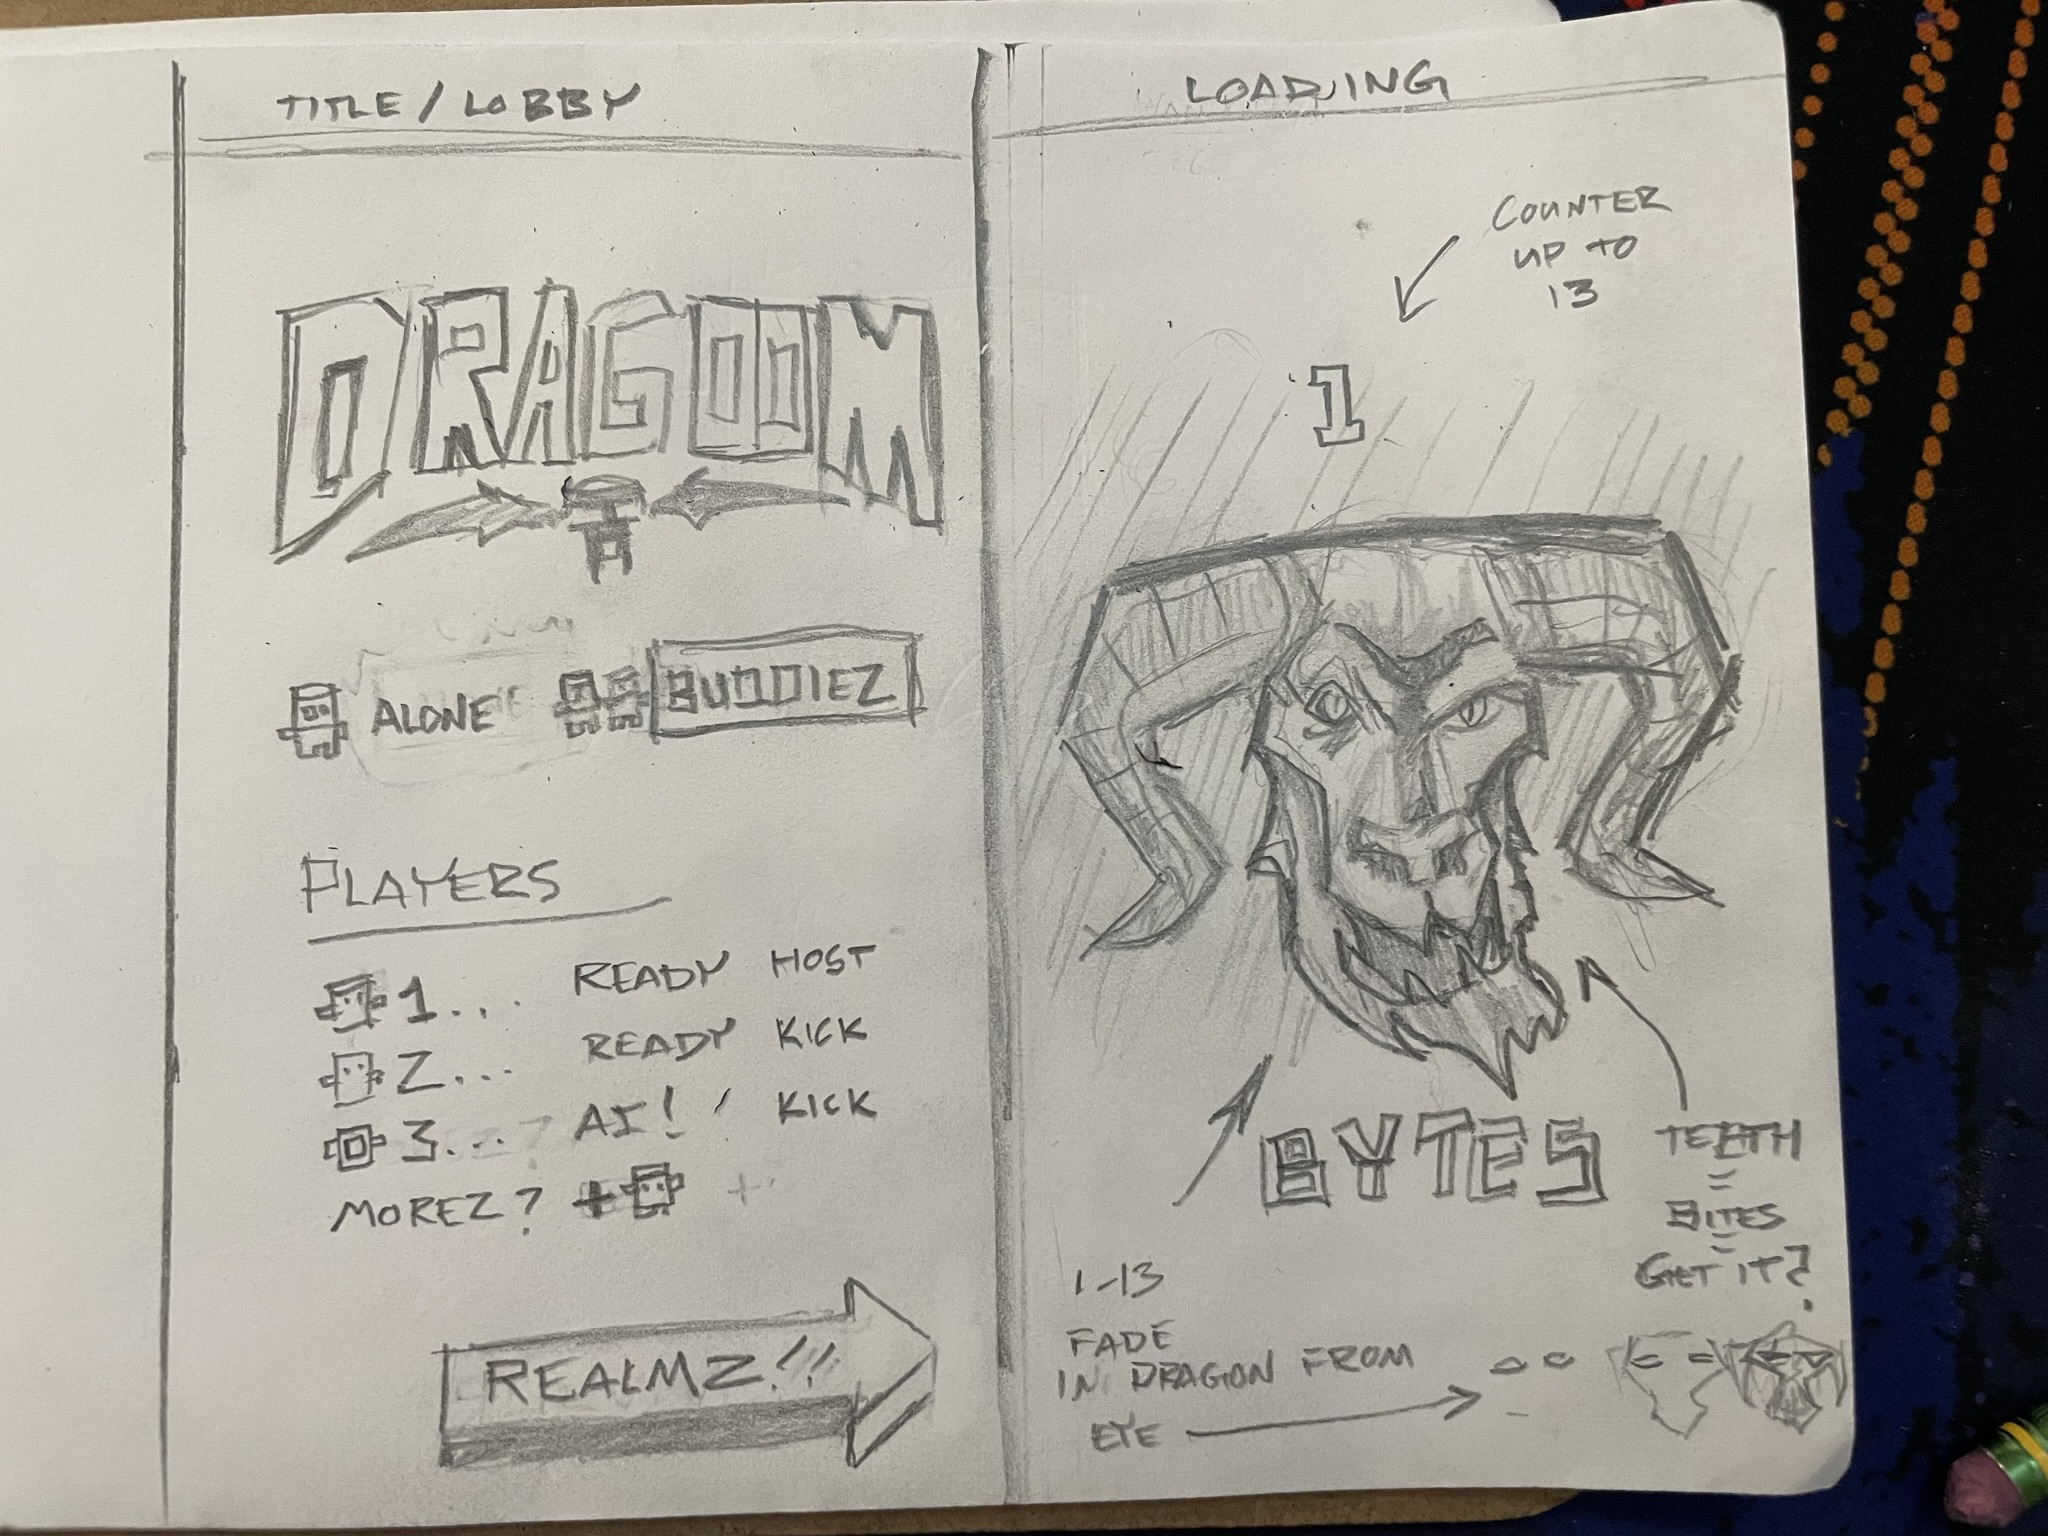 TITLE / LOBBY
DRAGOOM
ALONE
BUDDIEZ
PLAYERS
1... READY HOST
2... READY KICK
3... AI! KICK
MOREZ? +
REALMZ!!
LOADING
COUNTER
UP TO
13
1
BYTES
TEETH
=
BITES
=
GET IT?
1-13
FADE
IN DRAGON FROM
EYE